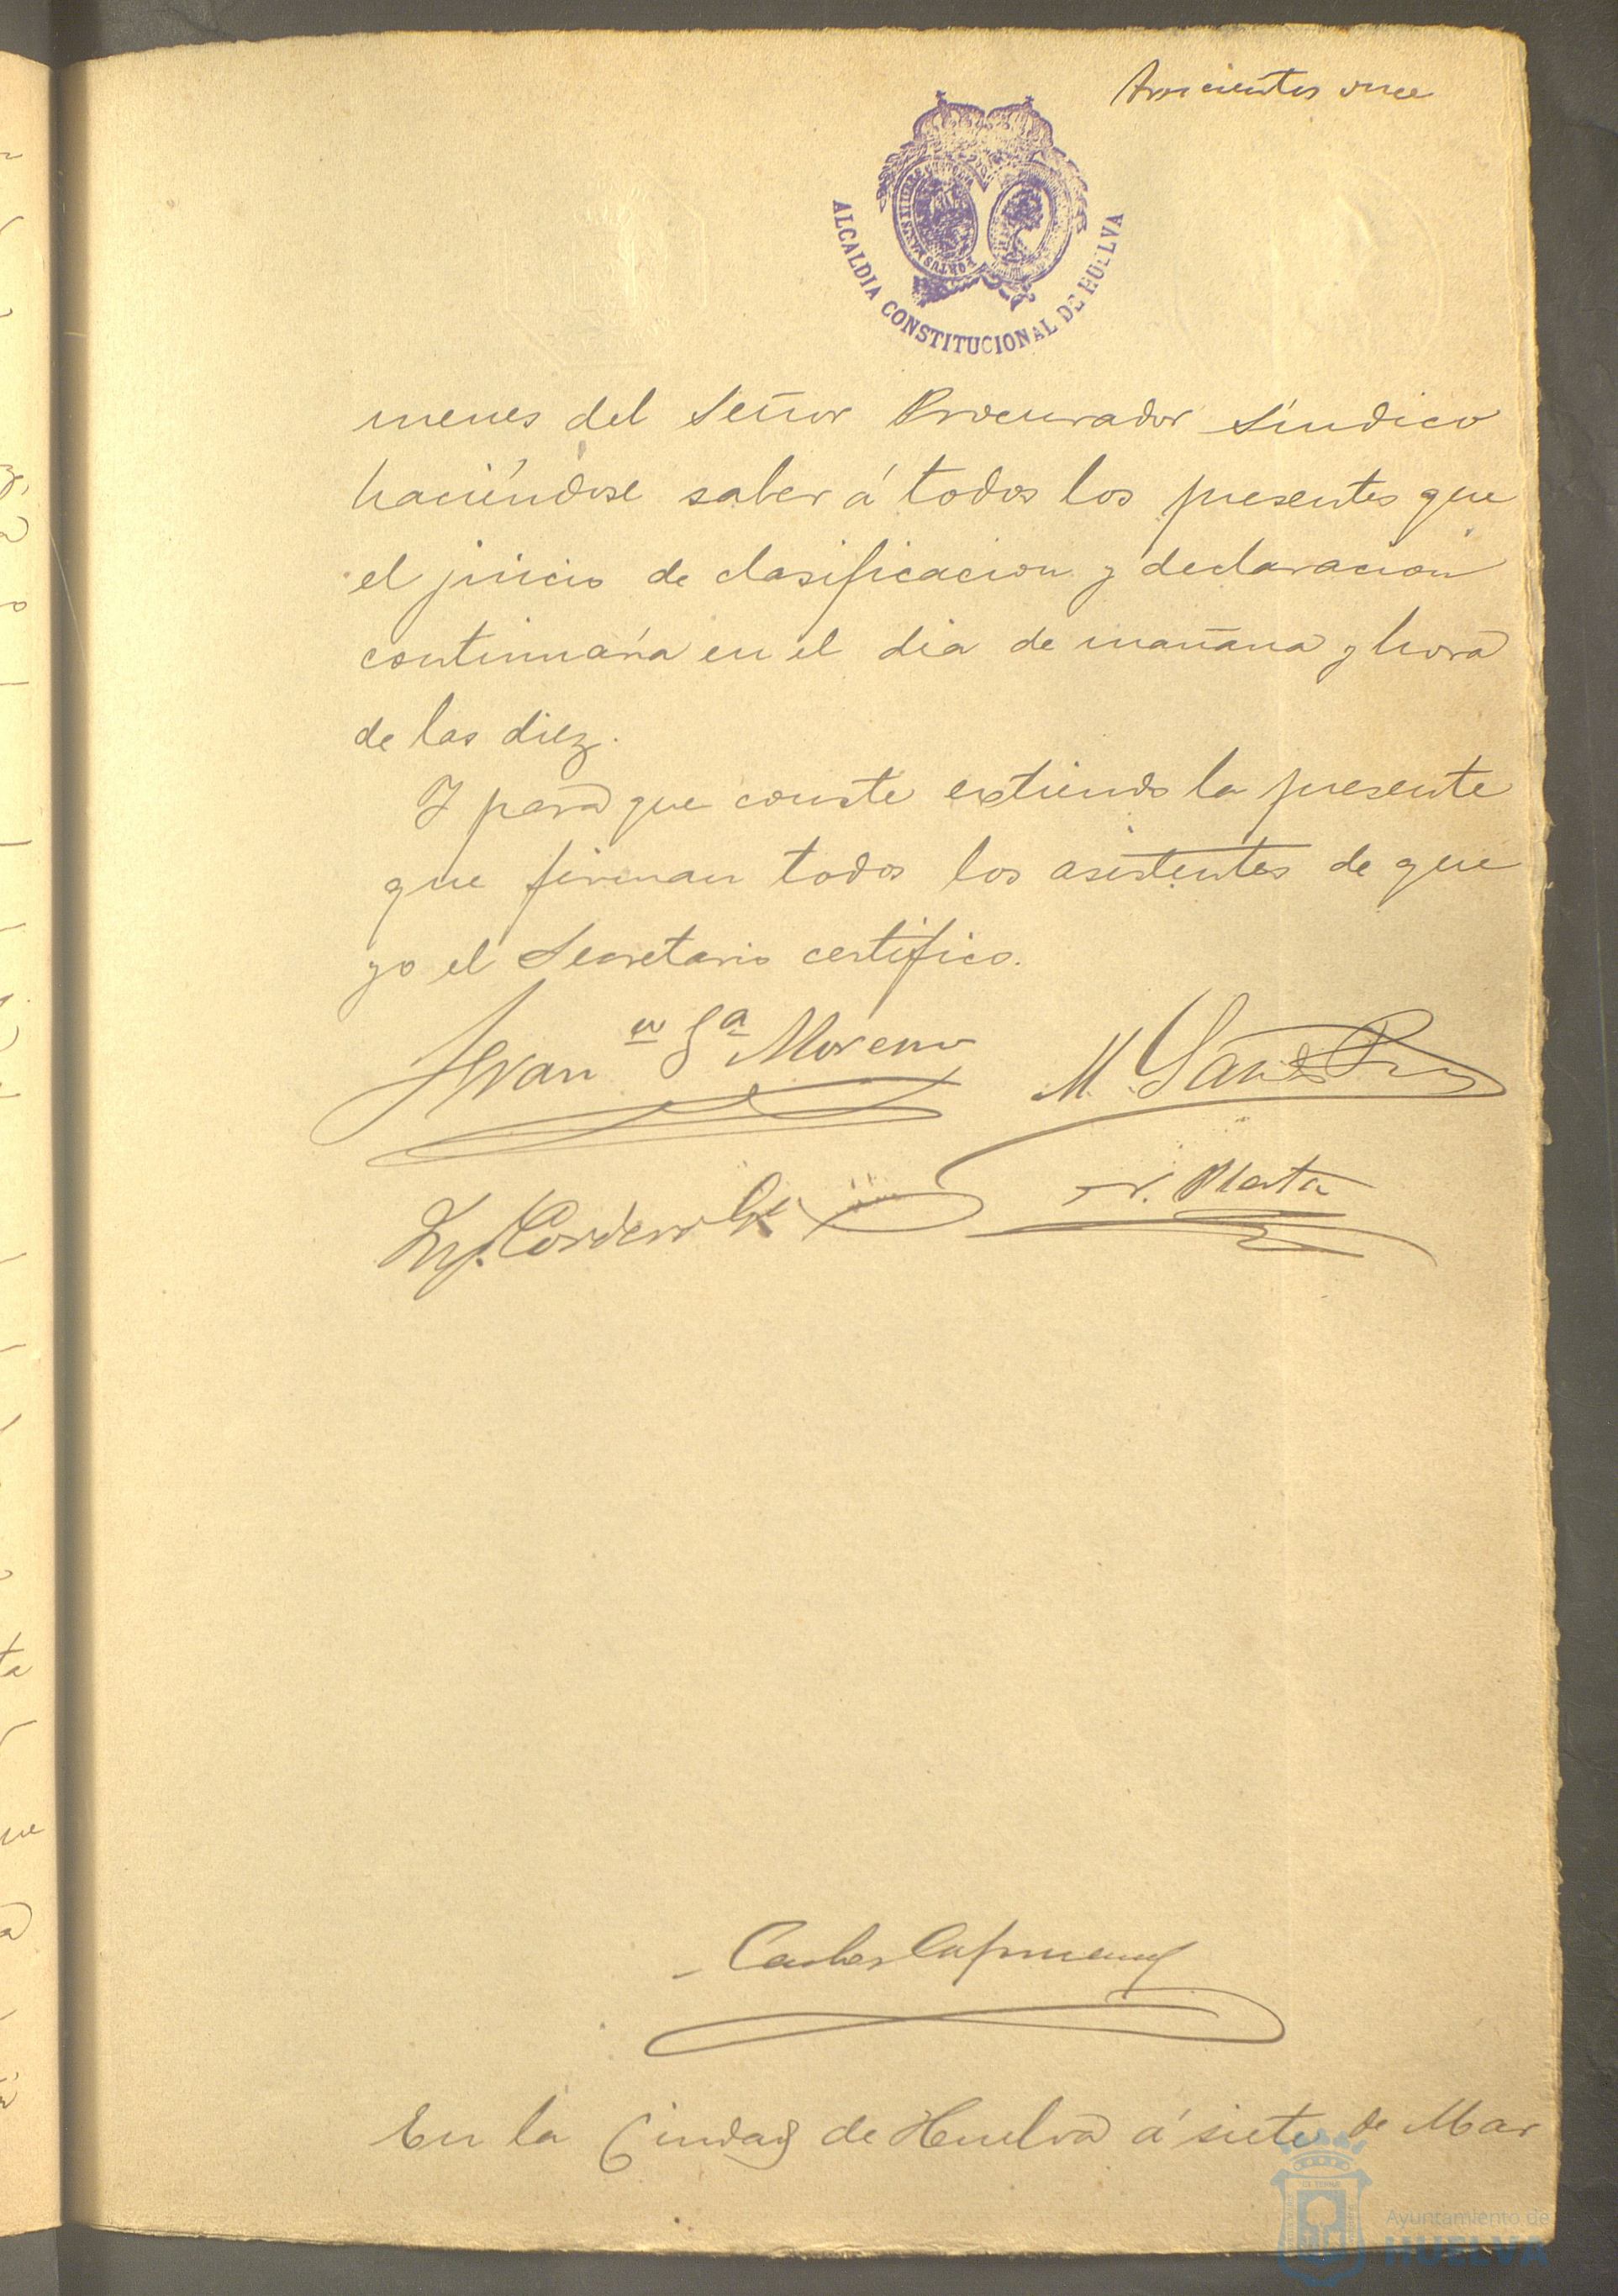 once
ALCALDIA CONSTITUCIONAL DE HUELVA
menes del Señor Procurador Síndico
haciéndose saber á todos los presentes que
el juicio de clasificacion y declaracion
continuará en el dia de mañana y hora
de las diez.
Y para que conste extiendo la presente
que firman todos los asistentes de que
yo el Secretario certifico.
Juan Gª Moreno
M.
Cordero
Plata
Carlos
En la Ciudad de Huelva á siete de Mar
Ayuntamiento de
HUELVA